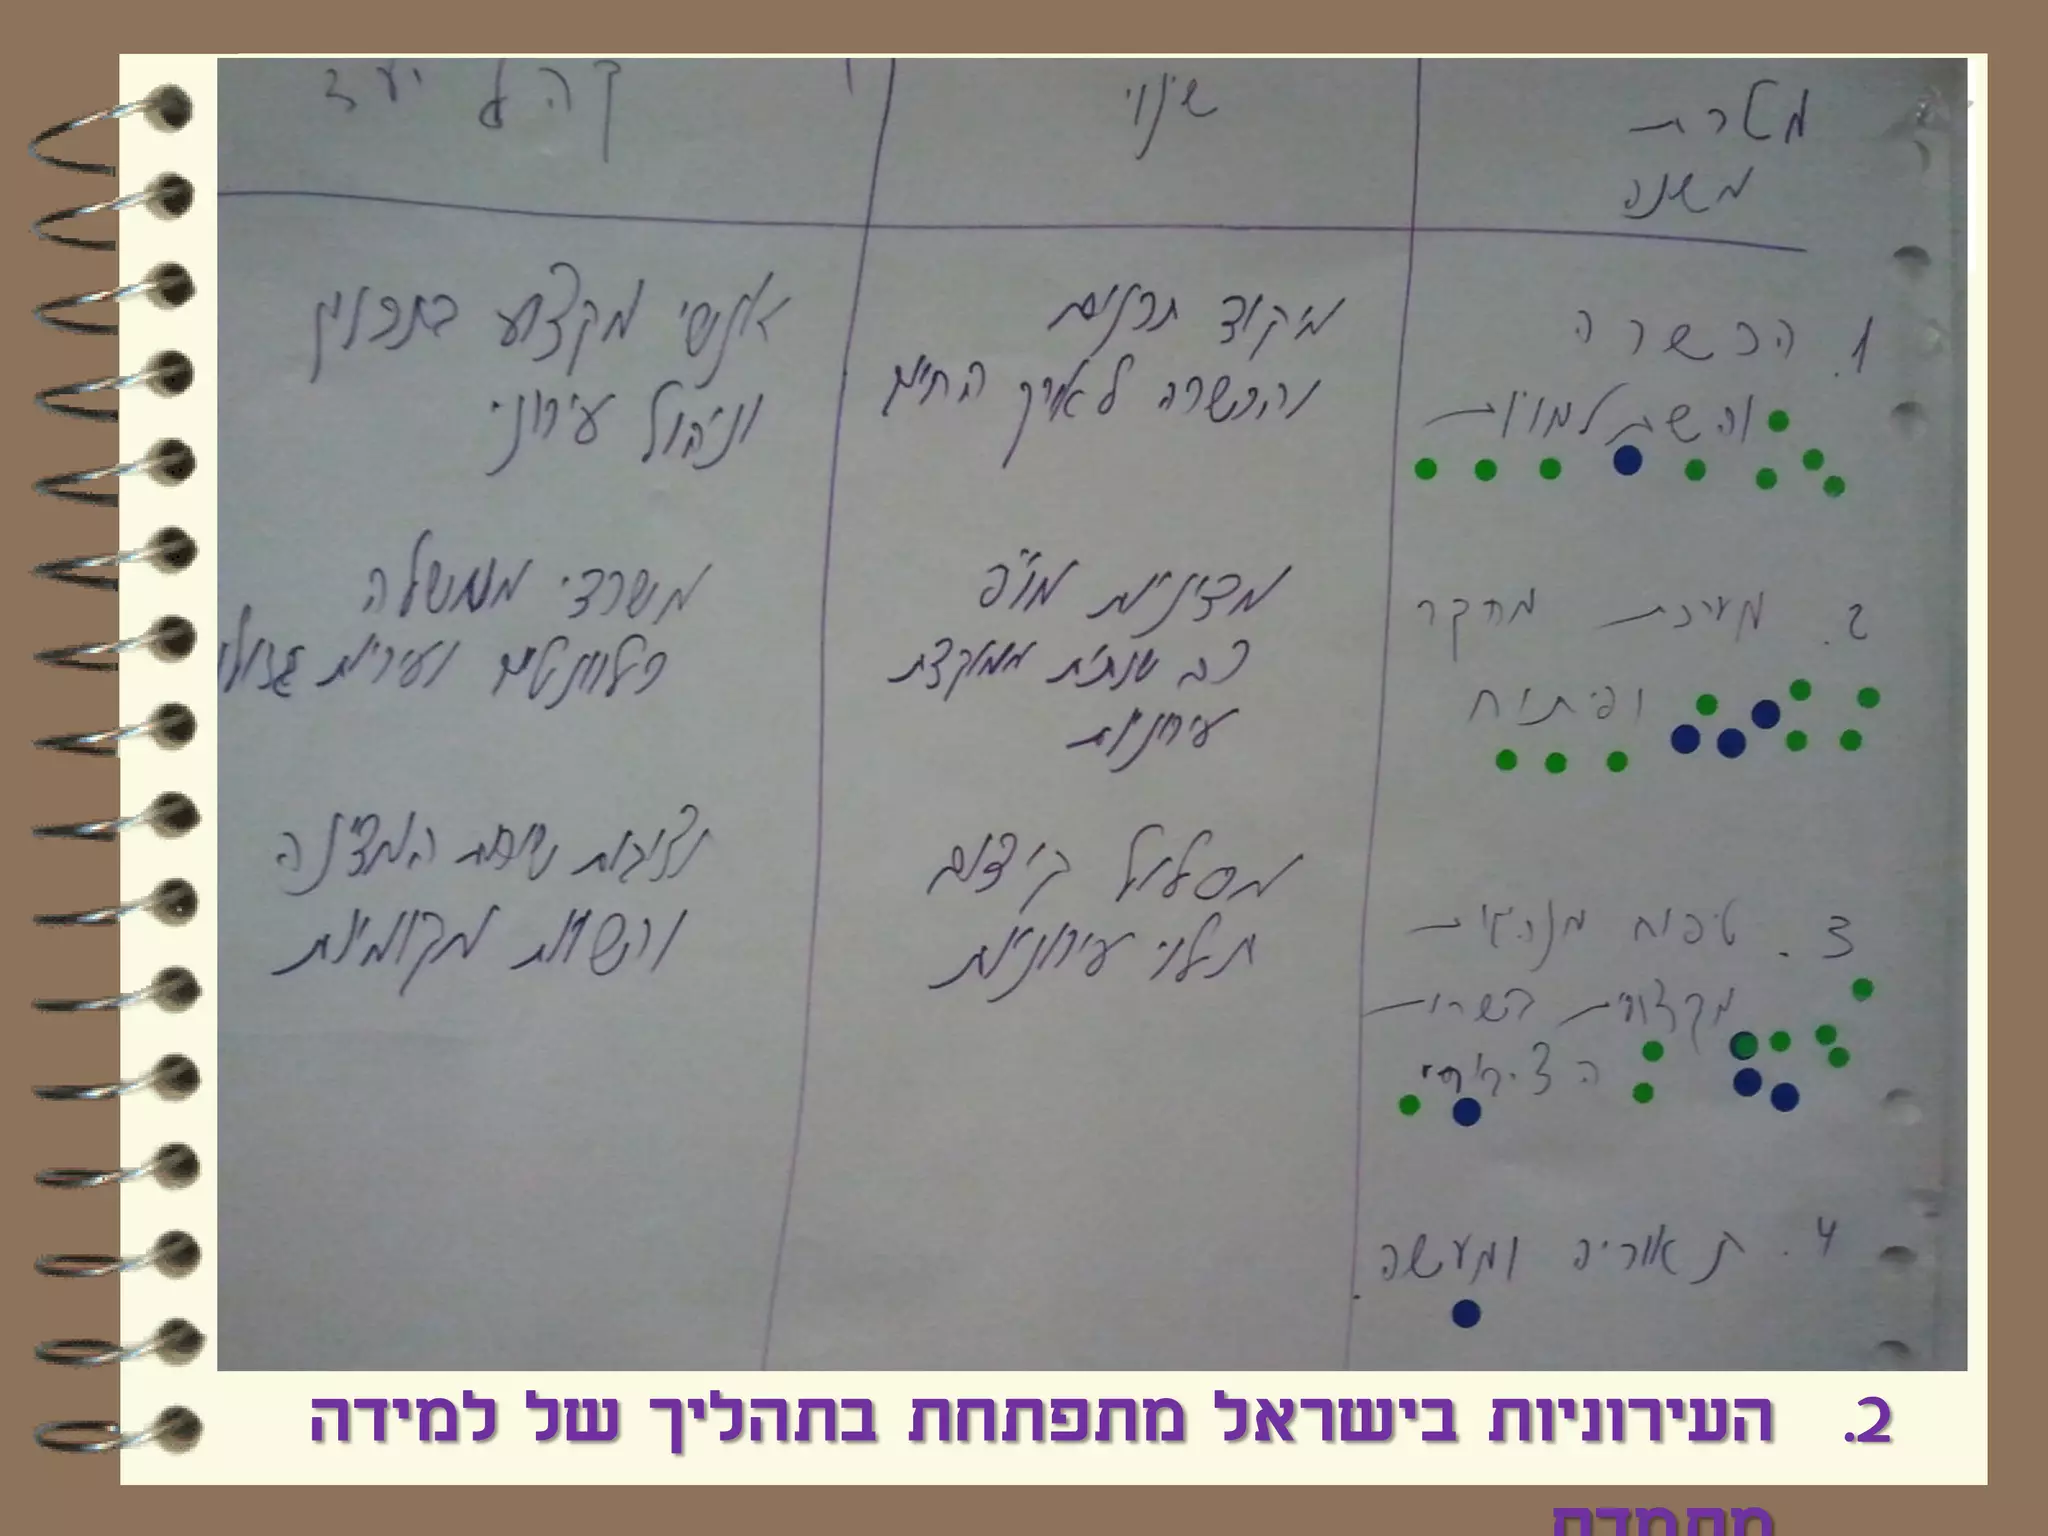 מטרת
משנה
שינוי
קהל יעד
1. הכשרה
והשתלמויות
מיקוד תכנים
והכשרה לאורך החיים
אנשי מקצוע בתכנון
וניהול עירוני
2. מערכת מחקר
ופיתוח
מדיניות מו"פ
רב שנתית ממוקדת
עירוניות
משרדי ממשלה
רלוונטים ועיריות גדולות
3. טיפוח מנהיגות
מקצועית בשרות
הציבורי
מסלול קידום
תלוי עירוניות
נציבות שירות המדינה
והשויות מקומיות
4. תאוריה ומעשה
2. העירוניות בישראל מתפתחת בתהליך של למידה
מתמדת